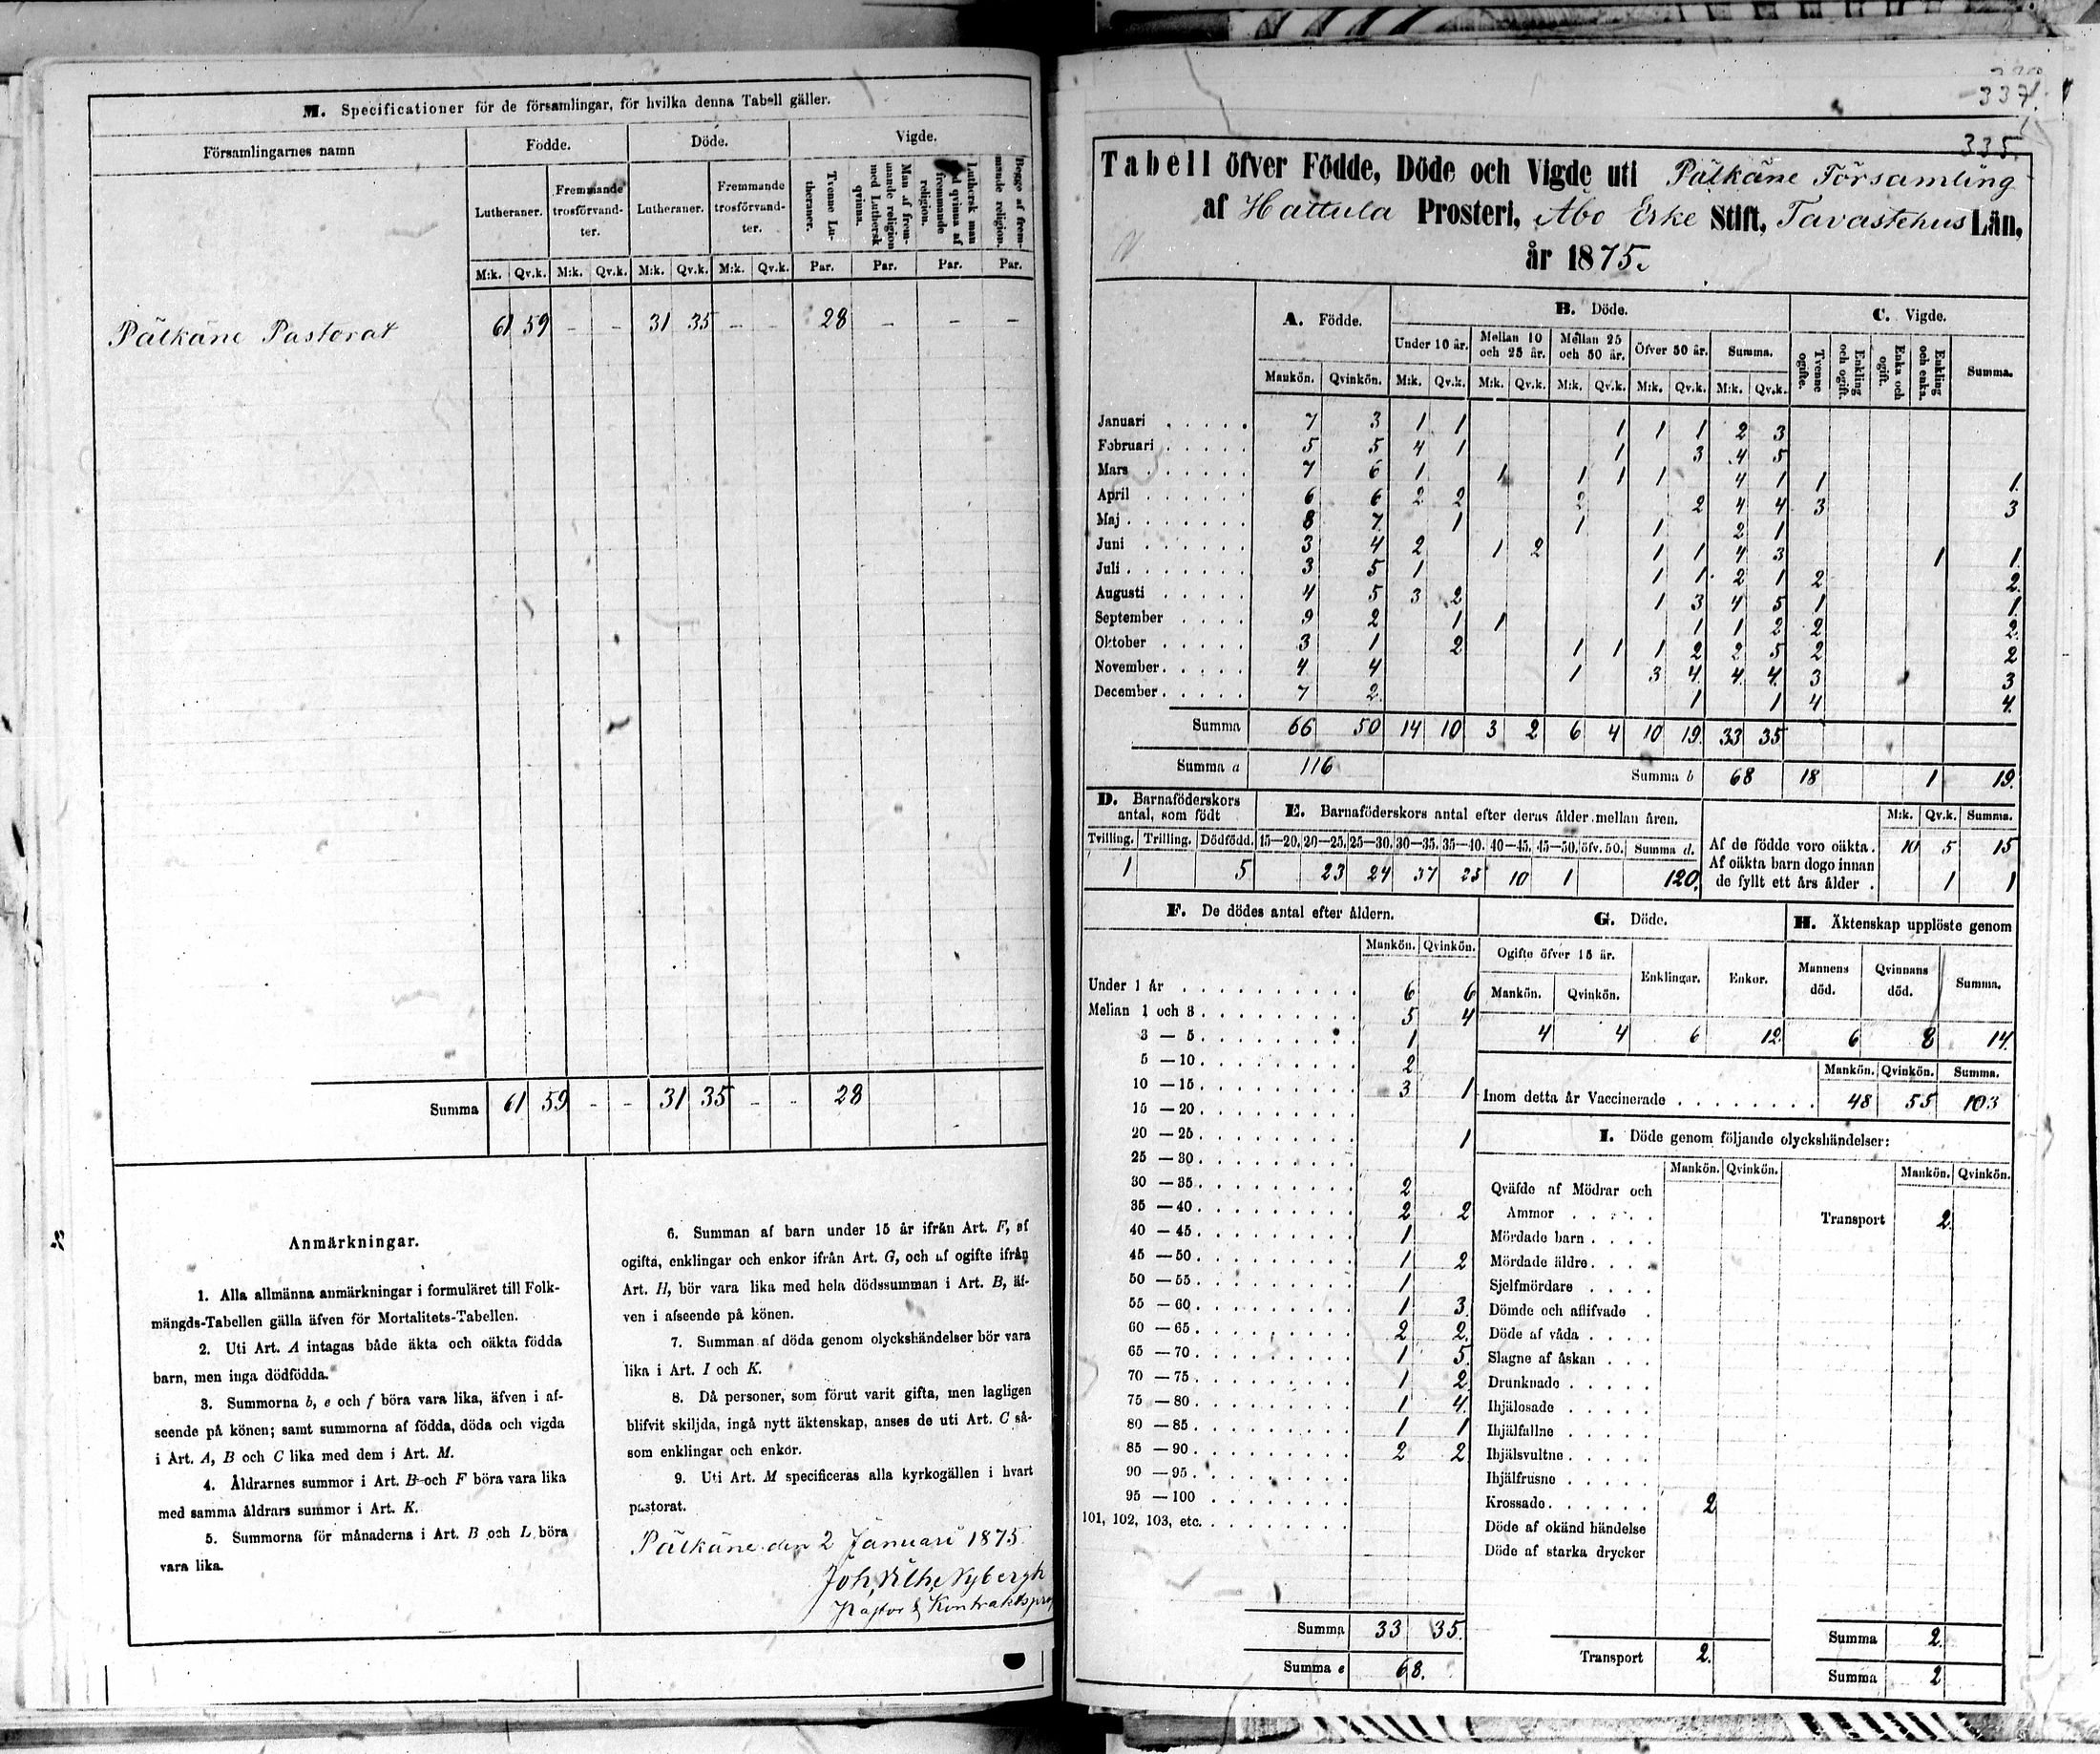 M. Specificationer för de församlingar, för hvilka denna Tabell gäller.
Församlingarnes namn
Födde. Döde. Vigde.
Lutheraner. Fremmande trosförvandter. Lutheraner. Fremmande trosförvandter. Tvenne Lutheraner. Man af fremmande religion med Luthersk qvinna. Luthersk man qvinna af fremmande religion. Begge af fremmande religion.
M:k. Qv.k. M:k. Qv.k. M:k. Qv.k. M:k. Qv.k. Par. Par. Par. Par.
Pälkäne Pastorat 61 59 - - 31 35 - - 28 - - -
Summa 61 59 - - 31 35 - - 28
Anmärkningar.
1. Alla allmänna anmärkningar i formuläret till Folk-
mängds-Tabellen gälla äfven för Mortalitets-Tabellen.
2. Uti Art. A intagas både äkta och oäkta födda
barn, men inga dödfödda.
3. Summorna b, e och f böra vara lika, äfven i af-
seende på könen; samt summorna af födda, döda och vigda
i Art. A, B och C lika med dem i Art. M.
4. Åldrarnes summor i Art. B och F böra vara lika
med samma åldrars summor i Art. K.
5. Summorna för månaderna i Art. B och L böra
vara lika.
6. Summan af barn under 15 år ifrån Art. F, af
ogifta, enklingar och enkor ifrån Art. G, och af ogifte ifrån
Art. H, bör vara lika med hela dödssumman i Art. B, äf-
ven i afseende på könen.
7. Summan af döda genom olyckshändelser bör vara
lika i Art. I och K.
8. Då personer, som förut varit gifta, men lagligen
blifvit skiljda, ingå nytt äktenskap, anses de uti Art. C så-
som enklingar och enkor.
9. Uti Art. M specificeras alla kyrkogällen i hvart
pastorat.
Pälkäne den 2 Januari 1875.
Joh, Vilh, Nybergh
Pastor & Kontraktspro
337.
335.
Tabell öfver Födde, Döde och Vigde uti Pälkäne Församling
af Hattula Prosteri, Åbo Erke Stift, Tavastehus Län,
år 1875.
A. Födde. B. Döde. C. Vigde.
Under 10 år. Mellan 10 och 25 år. Mellan 25 och 50 år. Öfver 50 år. Summa. Tvenne ogifte. Enkling och ogift. Enka och ogift. Enkling och enka. Summa.
Mankön. Qvinkön. M:k. Qv.k. M:k. Qv.k. M:k. Qv.k. M:k. Qv.k. M:k. Qv.k.
Januari 7 3 1 1 1 1 1 2 3
Februari 5 5 4 1 1 3 4 5
Mars 7 6 1 1 1 1 1 4 1 1 1.
April 6 6 2 2 2 2 4 4 3 3
Maj 8 7 1 1 1 2 1
Juni 3 4 2 1 2 1 1 4 3 1 1.
Juli 3 5 1 1 1 2 1 2 2.
Augusti 4 5 3 2 1 3 4 5 1 1.
September 9 2 1 1 1 1 2 2 2.
Oktober 3 1 2 1 1 1 2 2 5 2 2
November 4 4 1 3 4 4 4 3 3
December 7 2 1 1 4 4.
Summa 66 50 14 10 3 2 6 4 10 19. 33 35
Summa a 116 Summa b 68 18 1 19.
D. Barnaföderskors antal, som födt
Tvilling. Trilling. Dödfödd.
1 5
E. Barnaföderskors antal efter deras ålder mellan åren.
15—20. 20—25. 25—30. 30—35. 35—40. 40—45. 45—50. öfv. 50. Summa d.
23 24 37 25 10 1 120.
M:k. Qv.k. Summa.
Af de födde voro oäkta. 10 5 15
Af oäkta barn dogo innan
de fyllt ett års ålder . 1 1
F. De dödes antal efter åldern.
Mankön. Qvinkön.
Under 1 år 6 6
Mellan 1 och 3 5 4
3 — 5 1
5 — 10 2
10 — 15 3 1
15 — 20
20 — 25 1
25 — 30
30 — 35 2
35 — 40 2 2
40 — 45 1
45 — 50 1 2
50 — 55 1
55 — 60 1 3.
60 — 65 2 2.
65 — 70 1 5.
70 — 75 1 2.
75 — 80 1 4.
80 — 85 1 1
85 — 90 2 2
90 — 95
95 — 100
101, 102, 103, etc.
Summa 33 35.
Summa e 68.
G. Döde.
Ogifte öfver 15 år. Enklingar. Enkor.
Mankön. Qvinkön.
4 4 6 12
H. Äktenskap upplöste genom
Mannens död. Qvinnans död. Summa.
6 8 14.
Mankön. Qvinkön. Summa.
Inom detta år Vaccinerade 48 55 103
I. Döde genom följande olyckshändelser:
Mankön. Qvinkön. Mankön. Qvinkön.
Qväfde af Mödrar och
Ammor
Transport 2.
Mördade barn
Mördade äldre
Sjelfmördare
Dömde och aflifvade
Döde af våda
Slagne af åskan
Drunknade
Ihjälosade
Ihjälfallne
Ihjälsvultne
Ihjälfrusne
Krossade 2
Döde af okänd händelse
Döde af starka drycker
Transport 2.
Summa 2.
Summa 2